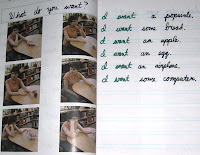 What do you want?
I want a popsicle.
I want some bread.
I want an apple.
I want an egg.
I want an airplane.
I want some computers.